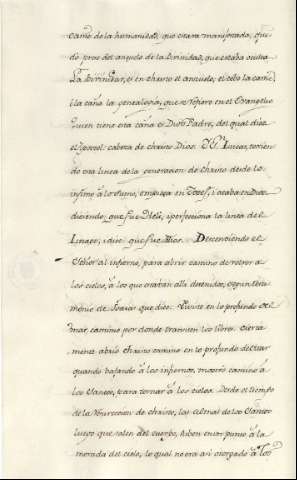 carne de la humanidad, que estava manifestada, que-
do preso del anzuelo de la Divinidad, que estaba oculta
La Divinidad, es en christo el anzuelo, el cebo la carne
i la caña la genealogia, que se refiere en el Evangelio
quien tiene esta caña es Dios Padre, del qual dice
el Apostol: cabeza de christo Dios. I S.n Lucas, texien
do esta linea de la generacion de christo desde lo
infimo a lo sumo, empieza en Josef, i acaba en Dios
diciendo, que fue Heli, i perfecciona la linea del
Linage; i dice que fue Dios. Descendiendo el
Señor al infierno, para abrir camino de retorno a
los cielos, a los que estaban alla detenidos, segun
de Isaias que dice: Pusiste en lo profundo del
mar camino por donde transiten los libres. cierta
mente abrio christo camino en lo profundo del mar
quando bajando a los infiernos, mostro camino a
los Santos, para tornar a los cielos. Desde el tiempo
de la Resurreccion de christo, las Almas de los Santos
luego que salen del cuerpo, suben en un punto a la
morada del cielo, lo qual no era asi otorgado a los